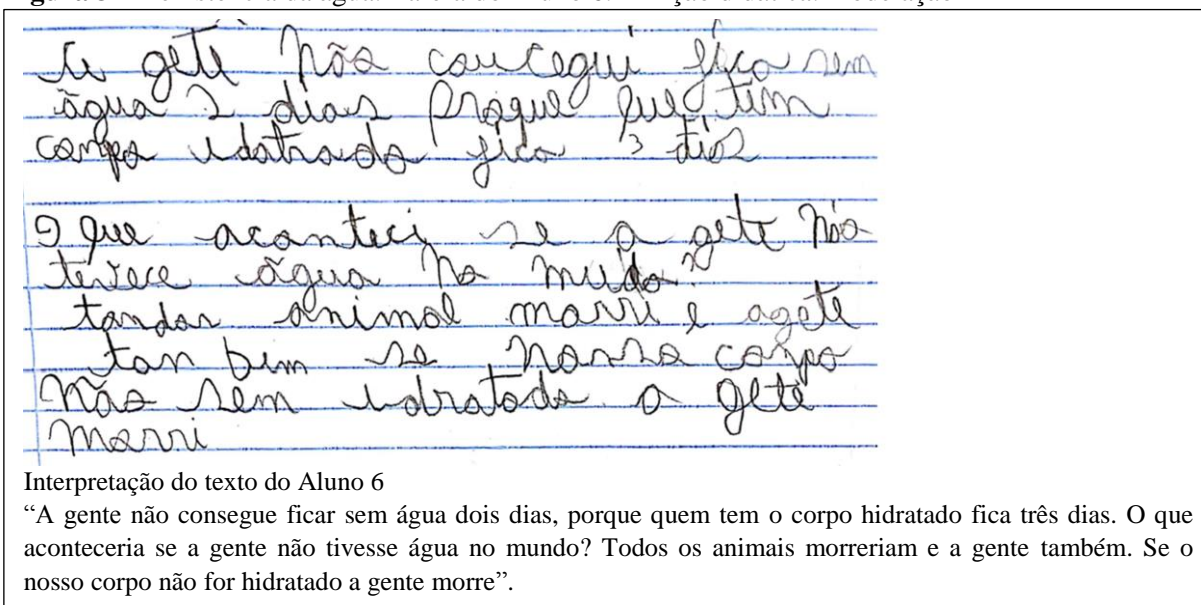 A gete não coucegui fico sem
água 2 dias proque que tem
corpo idatrado fico 3 dios
O que aconteci se a gete não
tevece água no mudo?
tandos animal morri e agete
tan bem se nosso corpo
não sem idratado a gete
morri
Interpretação do texto do Aluno 6
“A gente não consegue ficar sem água dois dias, porque quem tem o corpo hidratado fica três dias. O que
aconteceria se a gente não tivesse água no mundo? Todos os animais morreriam e a gente também. Se o
nosso corpo não for hidratado a gente morre”.